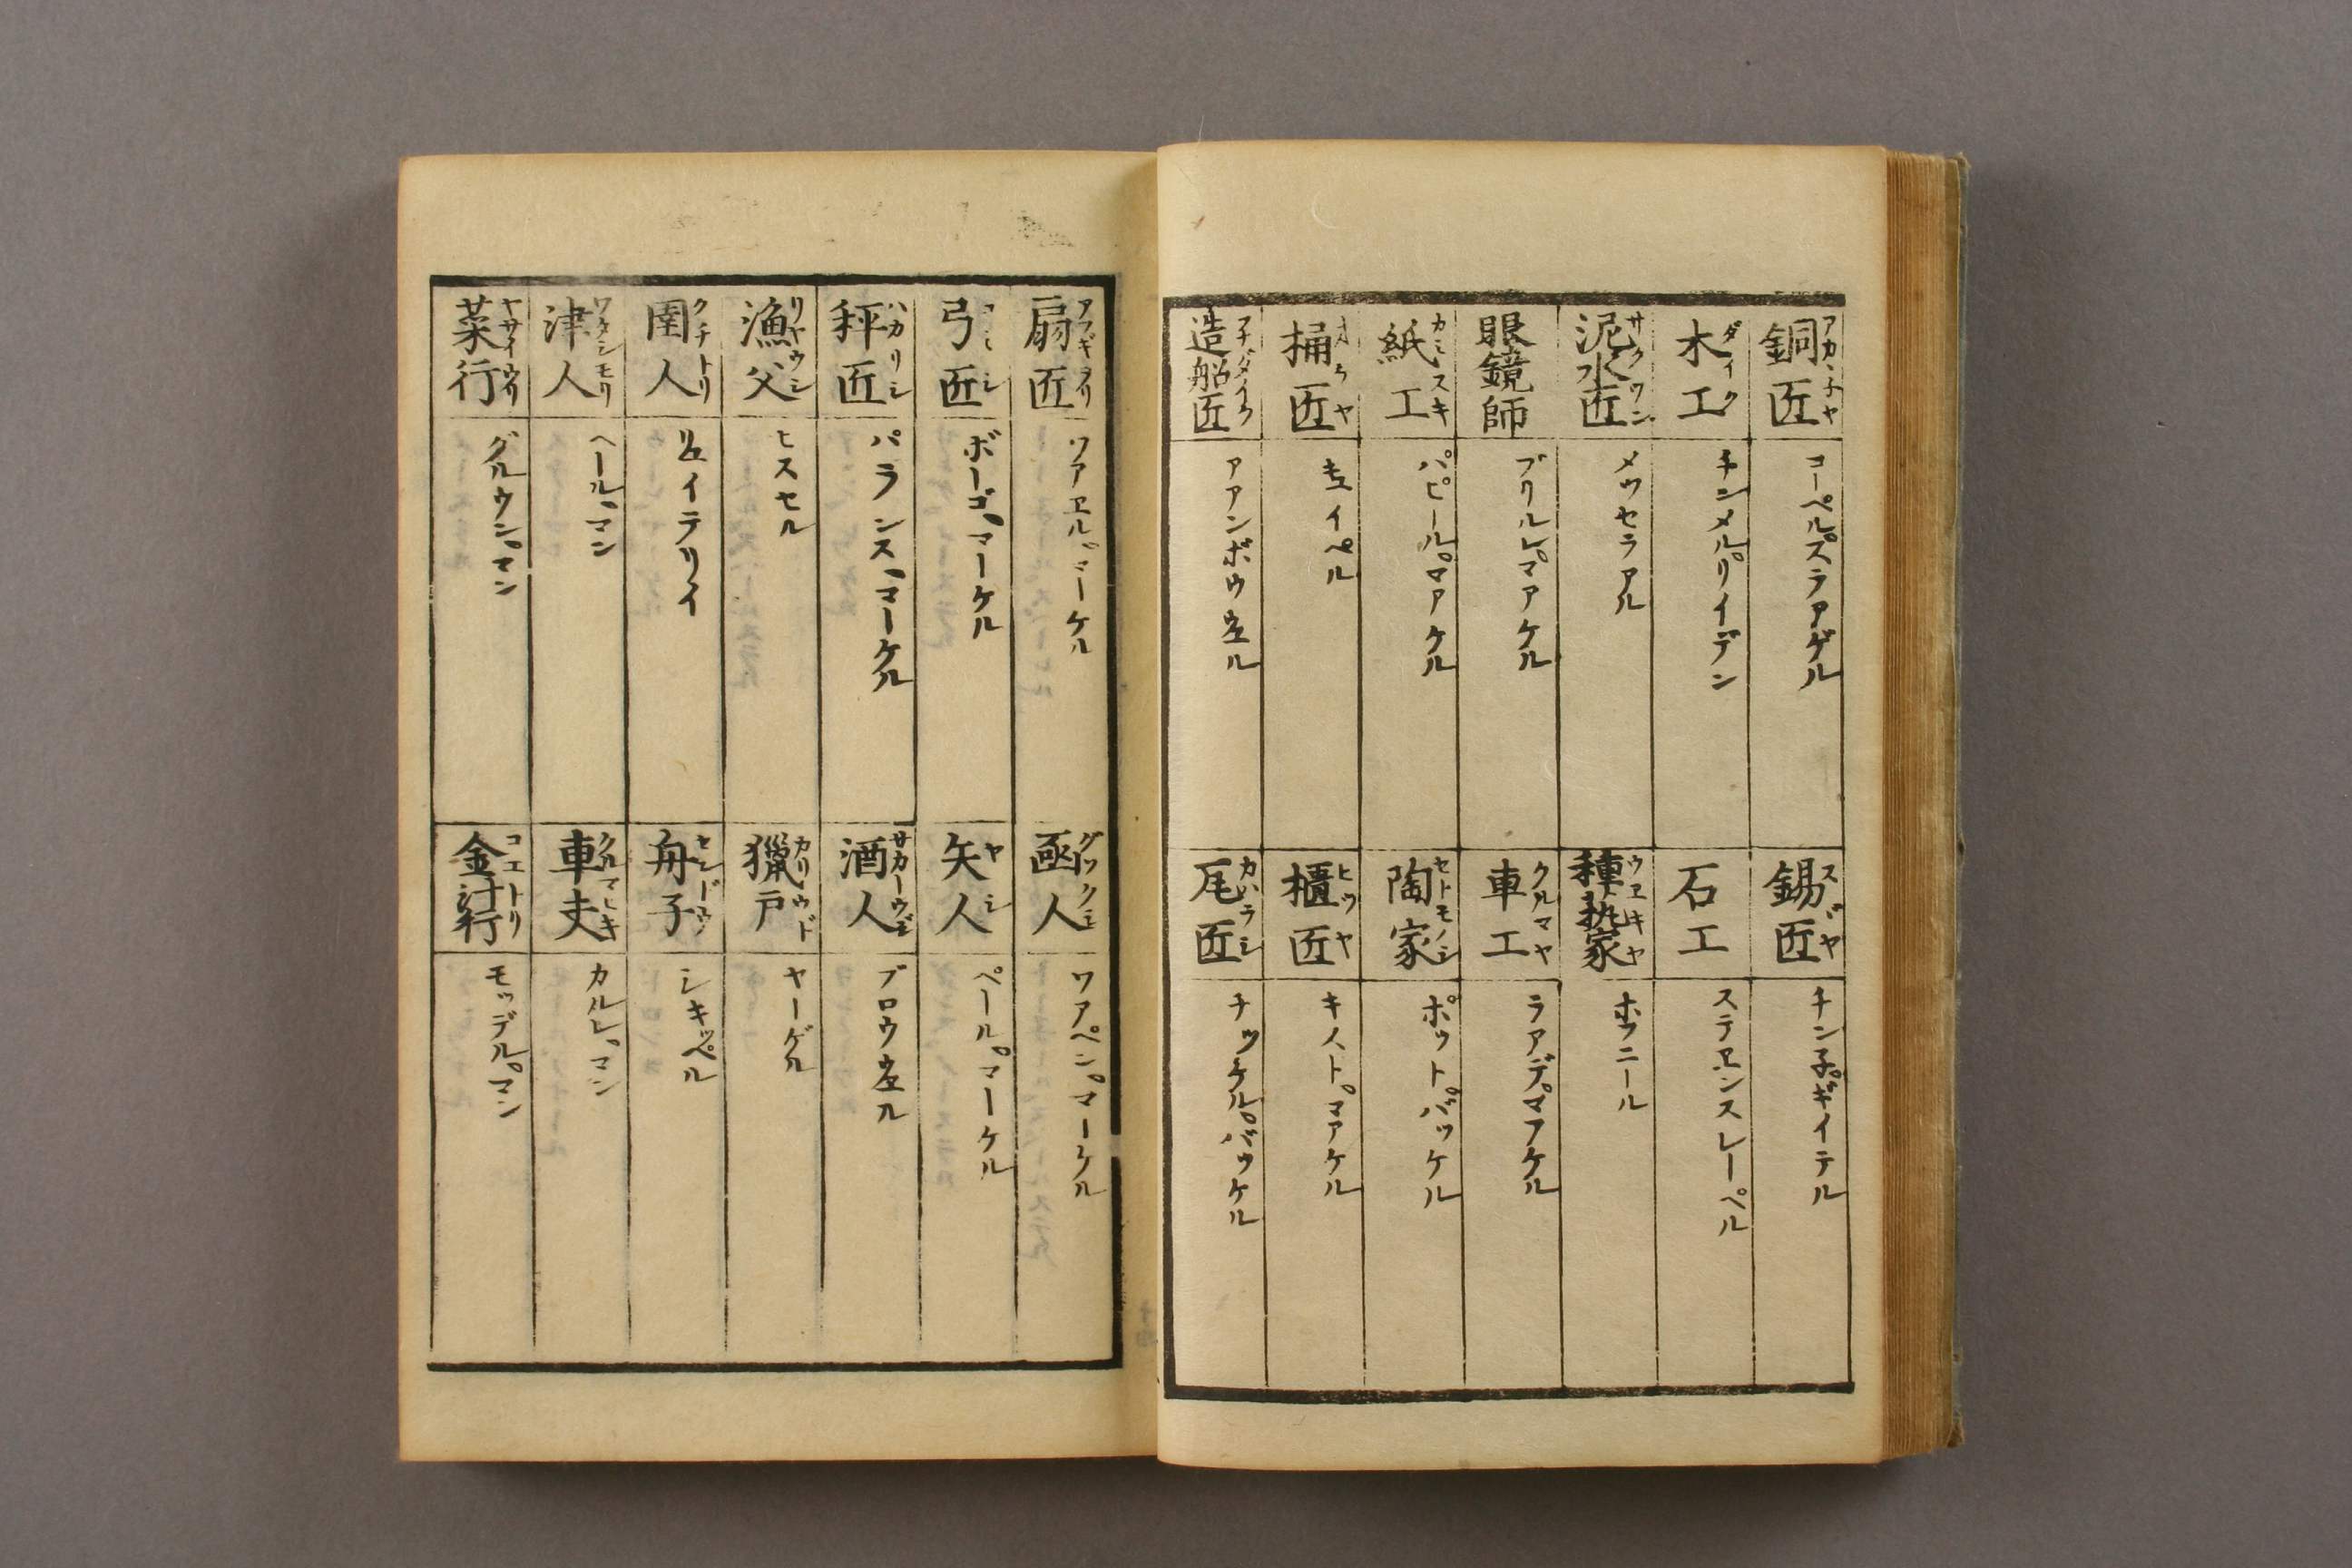 銅匠 アカヾ子ヤ
コーペル゜スラアゲル
錫匠 スヾヤ
チン子゜ギイテル
木工 ダイク
チンメル゜リイデン
石工
ステヱンスレーペル
泥水匠 サクワン
メツセラアル
種藝家 ウヱキヤ
ホフニール
眼鏡師
ブリルレ゜マアケル
車工 クルマヤ
ラアデ゜マアケル
紙工 カミスキ
パピール゜マアケル
陶家 セトモノシ
ポツト゜バツケル
桶匠 ヲケヤ
キュイペル
櫃匠 ヒツヤ
キスト゜マアケル
造船匠 フナダイク
アアンボウウエル
瓦匠 カハラシ
チツケル゜バツケル
扇匠 アフギヲリ
ワアヱル゜マーケル
函人 グソクシ
ワアペン゜マーケル
弓匠 ユミシ
ボーゴ゜マーケル
矢人 ヤシ
ペール゜マーケル
秤匠 ハカリシ
バランス゜マーケル
酒人
ブロウウエル
漁父 リヤウシ
ヒスセル
獵戸 カリウド
ヤーゲル
圉人 クチトリ
リュイテリイ
舟子 センドウ
シキッペル
津人 ワタシモリ
ヘール゜マン
車夫 クルマヒキ
カルレ゜マン
菜行 ヤサイウリ
グルウン゜マン
金汁行 コエトリ
モッデル゜マン